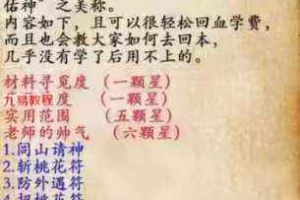 佑神”之美称。
内容如下，且可以很轻松回血学费，
而且也会教大家如何去回本，
几乎没有学了后用不上的。
材料寻觅度（一颗星）
九易教程度（一颗星）
实用范围（五颗星）
老师的帅气（六颗星）
1.闾山请神
2.斩桃花符
3.防外遇符